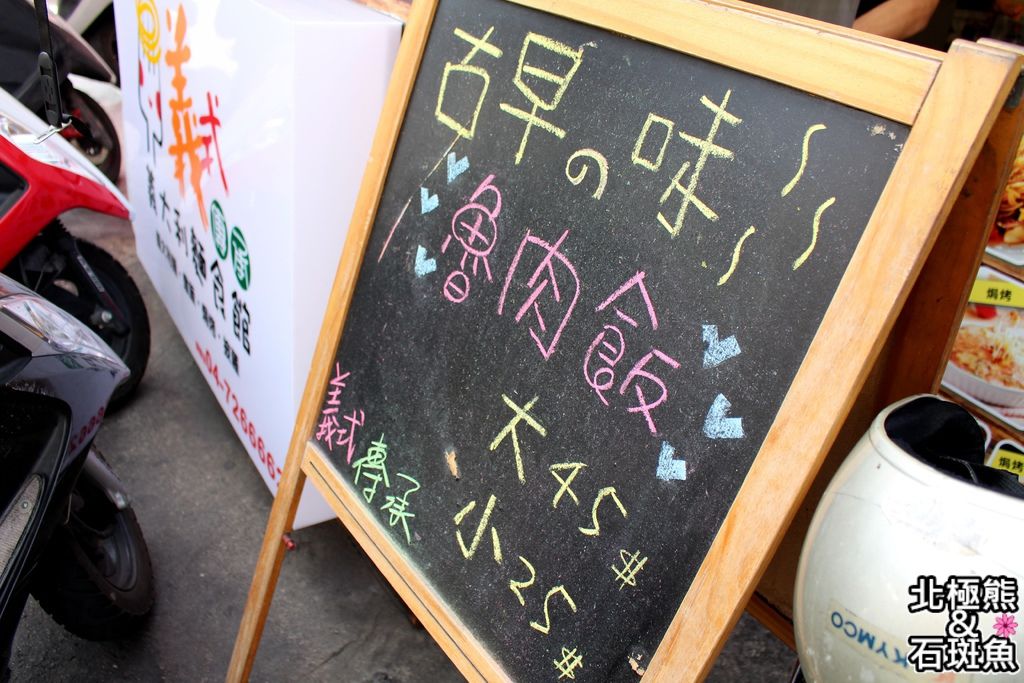 古早の味
魯肉飯
大45
小25 $
$
義式
傳承
義式
傳承
義大利麵食館
04-726666
焗烤
焗烤
KYMCO
北極熊
&
石斑魚